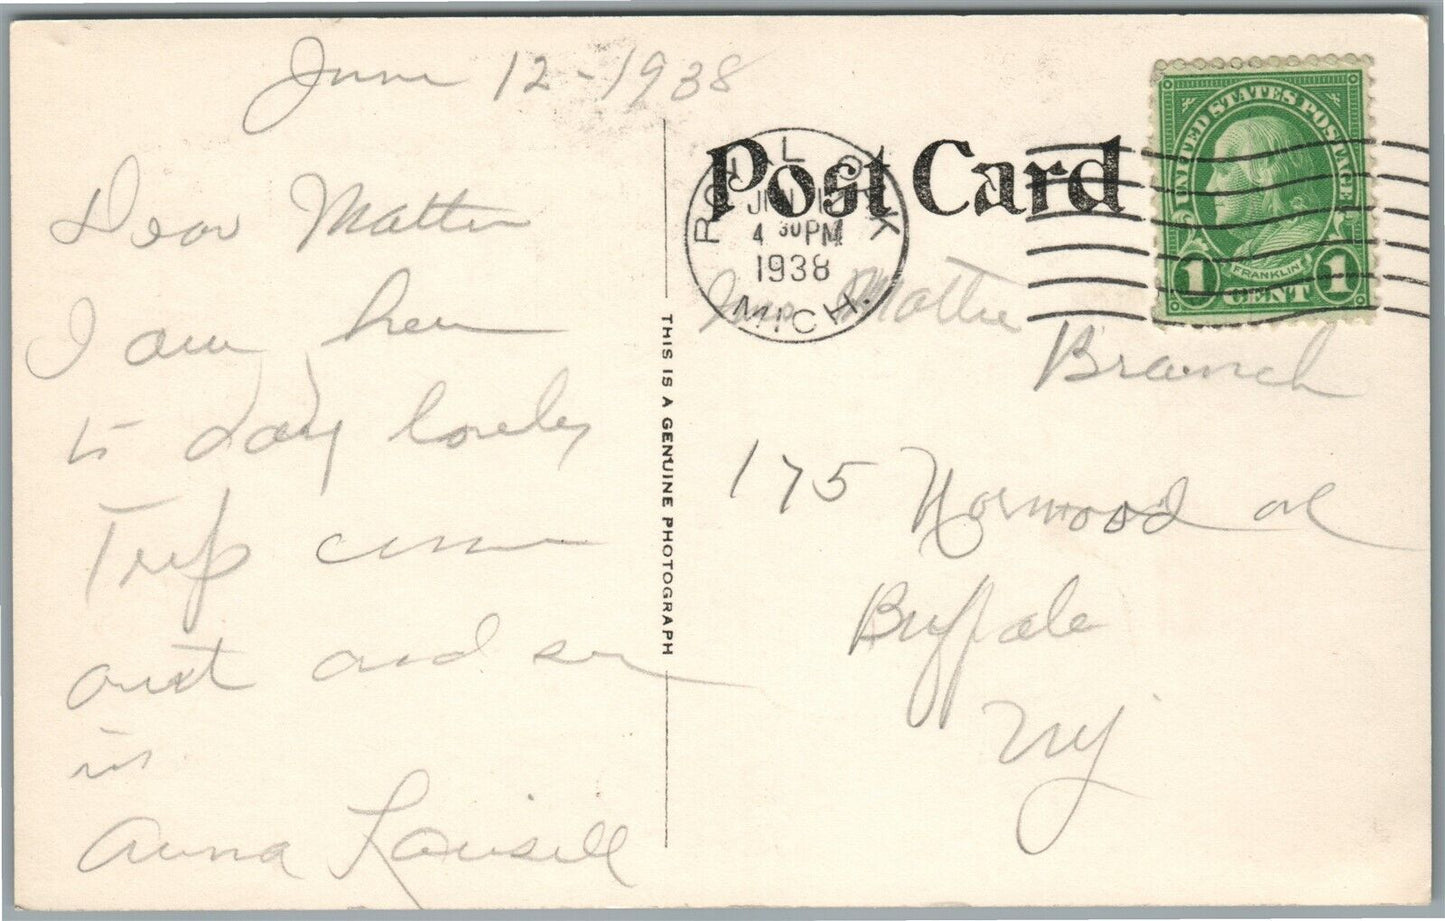 June 12-1938
Dear Mattie
I am here
to day lovely
Trip come
out and
in
Anna
Post Card
THIS IS A GENUINE PHOTOGRAPH
JUN
4 30 PM
1938
MICH.
UNITED STATES POSTAGE
FRANKLIN
1 CENT 1
Mrs Mattie
Branch
175 Norwood av
Buffalo
NY